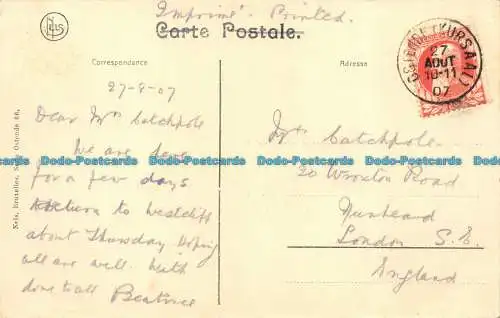 Imprimé - Printed.
Carte Postale.
Correspondance
Adresse
OSTENDE (KURSAAL)
27
AOUT
10-11
07
27-8-07
Dear Mrs Catchpole
We are here
for a few days
Return to Westcliff
about Thursday Hoping
all are well. With
love to all Beatrice
Mrs Catchpole
20 Wroxton Road
Nunhead
London S.E.
England
Nels, Bruxelles, Ostende
Dodo-Postcards Dodo-Postcards Dodo-Postcards Dodo-Postcards Dodo-Postcards Dodo-Postcards